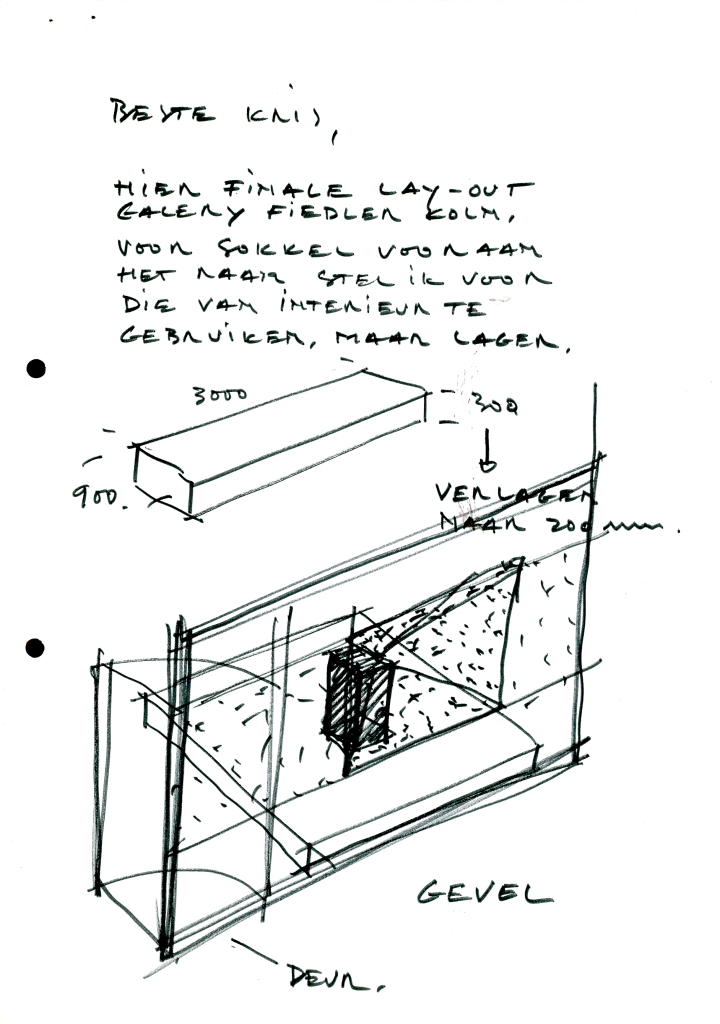 BESTE KRIS,
HIER FINALE LAY-OUT
GALERY FIEDLER KOLN.
VOOR SOKKEL VOORAAN
HET RAAM STEL IK VOOR
DIE VAN INTERIEUR TE
GEBRUIKEN, MAAR LAGER.
3000
300
900.
VERLAGEN
NAAR 200 mm.
GEVEL
DEUR.